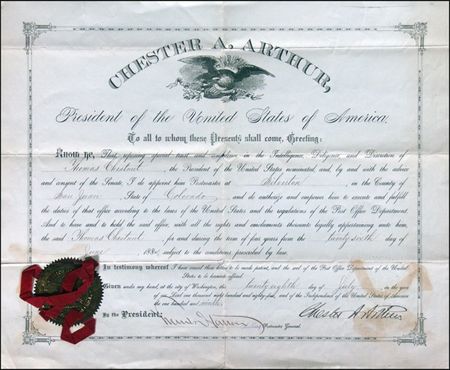 CHESTER A. ARTHUR,
President of the United States of America:
To all to whom these Presents shall come, Greeting:
Know Ye, That, reposing special trust and confidence in the Intelligence, Diligence, and Discretion of
Thomas Chestnut, the President of the United States nominated, and, by and with the advice
and consent of the Senate, I do appoint him Postmaster at Silverton, in the County of
San Juan, State of Colorado and do authorize and empower him to execute and fulfill
the duties of that office according to the laws of the United States and the regulations of the Post Office Department.
And to have and to hold the said office, with all the rights and emoluments thereunto legally appertaining unto him,
the said Thomas Chestnut, for and during the term of four years from the twenty sixth day of
June 188 subject to the conditions prescribed by law.
In testimony whereof I have caused these letters to be made patent, and the seal of the Post Office Department of the United
States to be hereunto affixed.
Given under my hand, at the city of Washington, the twenty eighth day of July in the year
of our Lord one thousand eight hundred and eighty four, and of the Independence of the United States of America
the one hundred and ninth.
By the President:
Postmaster General.
Chester A. Arthur